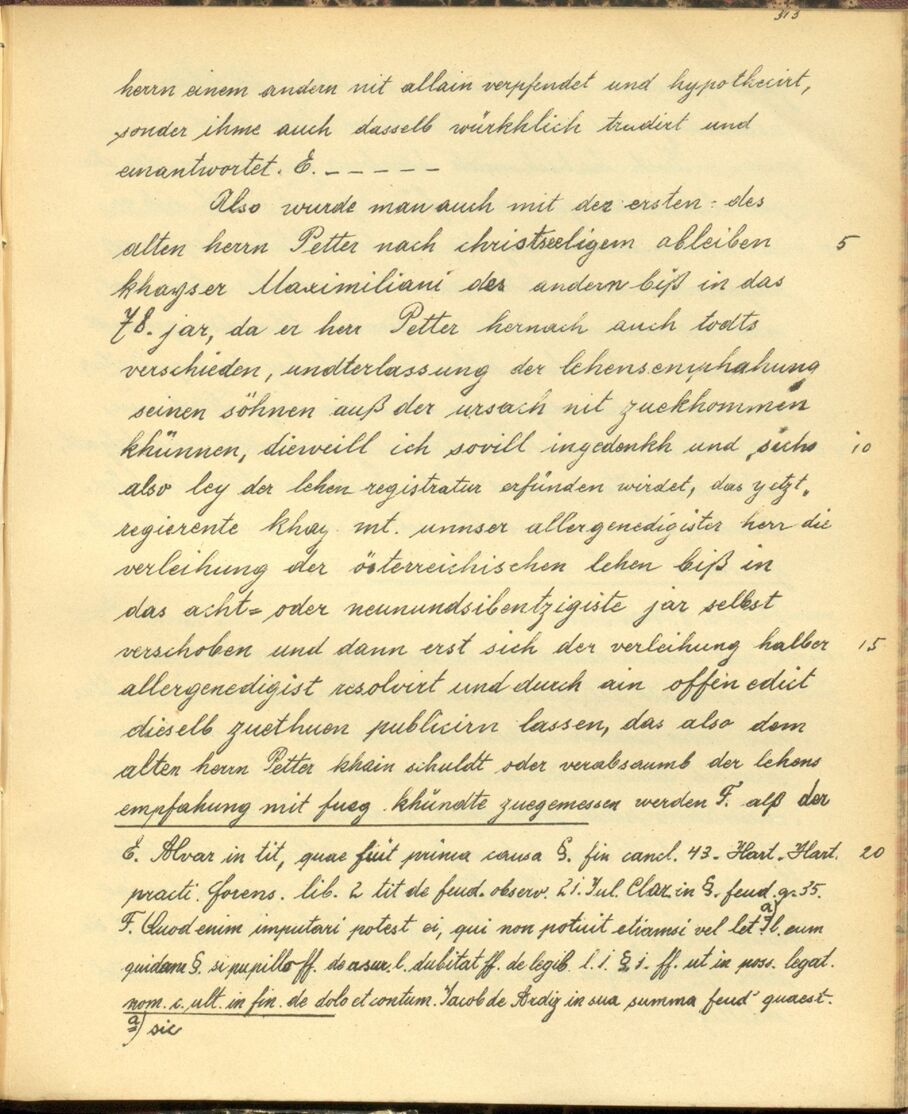 313
herrn einem andern nit allain verpfendet und hypothecirt,
sonder ihme auch dasselb würkhlich tradirt und
einantwortet. E. _ _ _ _ _ _
Also wurde man auch mit der ersten - des
alten herrn Petter nach christseeligem ableiben 5
khayser Maximiliani des andern biß in das
78. jar, da er herr Petter hernach auch todts
verschieden, undterlassung der lehensemphahung
seinen söhnen auß der ursach nit zuekhommen
khünnen, dieweill ich sovill ingedenkh und sichs 10
also bey der lehen registratur erfünden wirdet, das yetzt.
regierente khay. mt. unnser allergenedigister herr die
verleihung der österreichischen lehen biß in
das acht= oder neunundsibentzigiste jar selbst
verschoben und dann erst sich der verleihung halber 15
allergenedigist resolvirt und durch ain offen edict
dieselb zuethuen publicirn lassen, das also dem
alten herrn Petter khain schuldt oder verabsaumb der lehens
empfahung mit fueg khündte zuegemessen werden F. alß der
E. Alvar in tit, quae fuit prima causa §. fin cancl. 43 - Hart. Hart. 20
practi. forens. lib. 2 tit de feud. observ. 21. Jul. Clar in §. feud. q. 35.
F. Quod enim imputari potest ei, qui non potuit etiamsi vel let a) Il. eum
quidam §. si pupillo ff. de asur. l. dubitat ff. de legib. l. i. § i. ff. ut in poss. legat.
nom. c. ult. in fin. de dolo et contum. Jacob de Ardiz in sua summa feud' quaest.
a) sic